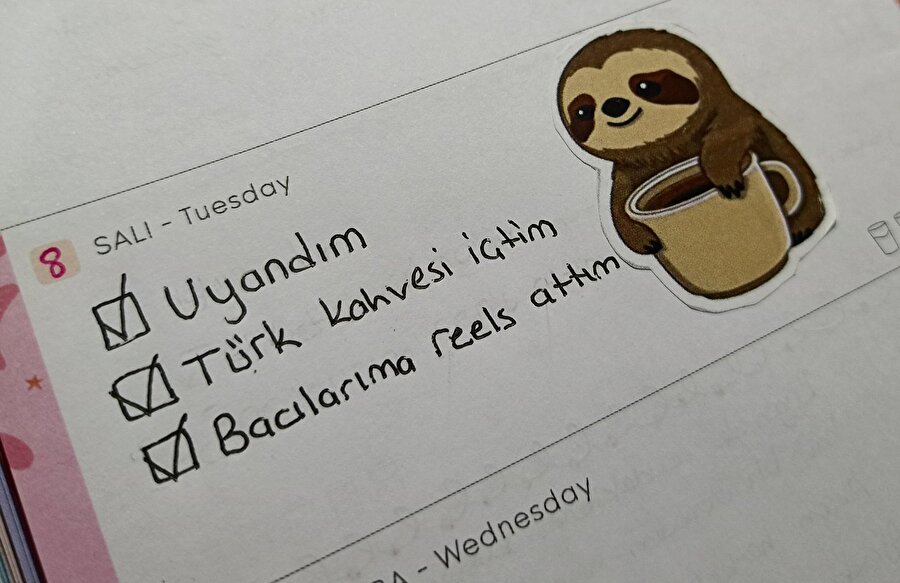 8 SALI - Tuesday
Uyandım
Türk kahvesi içtim
Bacılarıma reels attım
- Wednesday